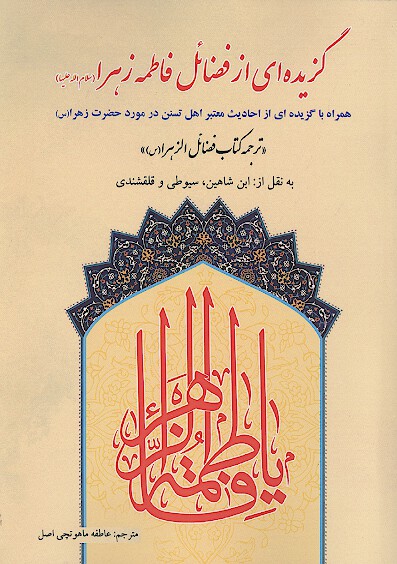 گزیده‌ای از فضائل فاطمه زهرا (سلام الله علیها)
همراه با گزیده ای از احادیث معتبر اهل تسنن در مورد حضرت زهرا(س)
«ترجمه کتاب فضائل الزهرا(س)»
به نقل از: ابن شاهین، سیوطی و قلقشندی
یا فاطمة الزهراء
مترجم: عاطفه ماهوتچی اصل